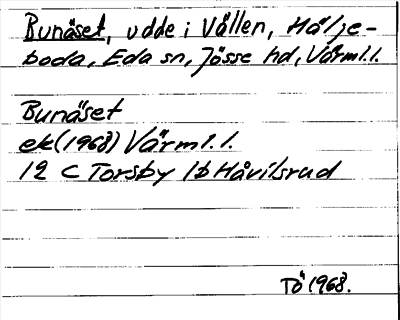 Bunäset, udde i Vållen, Hälje-
boda, Eda sn, Jösse hd, Värml.l.
Bunäset
ek(1968) Värml.l.
12 C Torsby 1b Håvilsrud
Tö 1968.